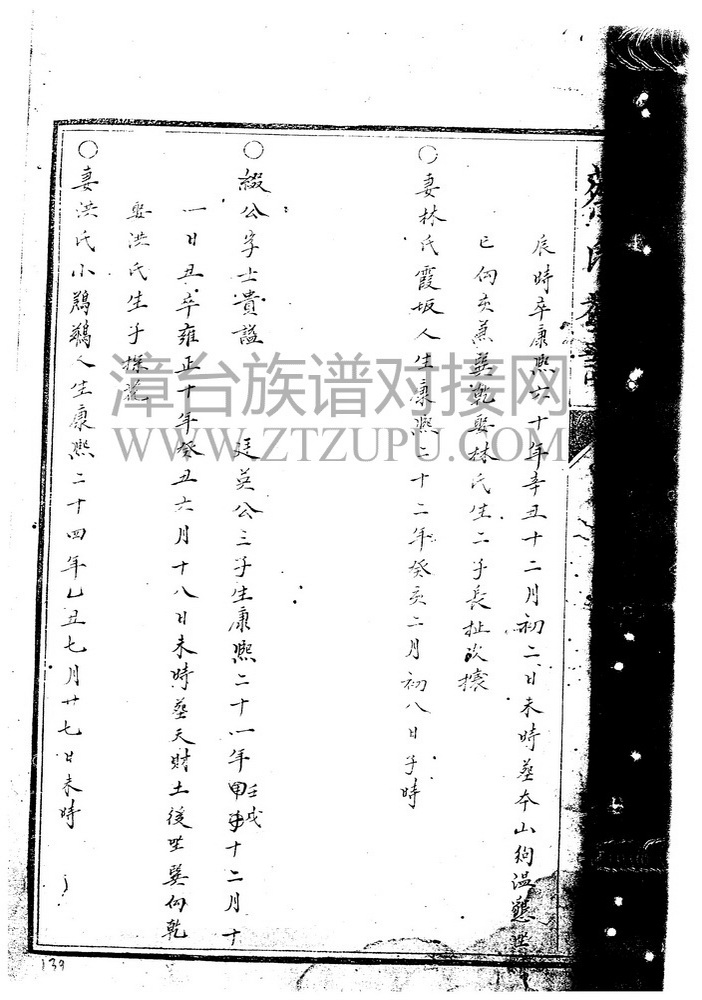 辰時卒康熙六十年辛丑十二月初二日未時塟本山狗温墾坐
巳向亥兼巽乾娶林氏生二子長祉次擡
○妻林氏霞坂人生康熙二十二年癸亥二月初八日子時
○綴公字士貴謚 廷英公三子生康熙二十一年壬戌十二月十
一日丑卒雍正十年癸丑六月十八日未時塟天財土後坐巽向乾
娶洪氏生子探
○妻洪氏小鵝人生康熙二十四年乙丑七月廿七日未時
139
漳台族谱对接网
WWW.ZTZUPU.COM